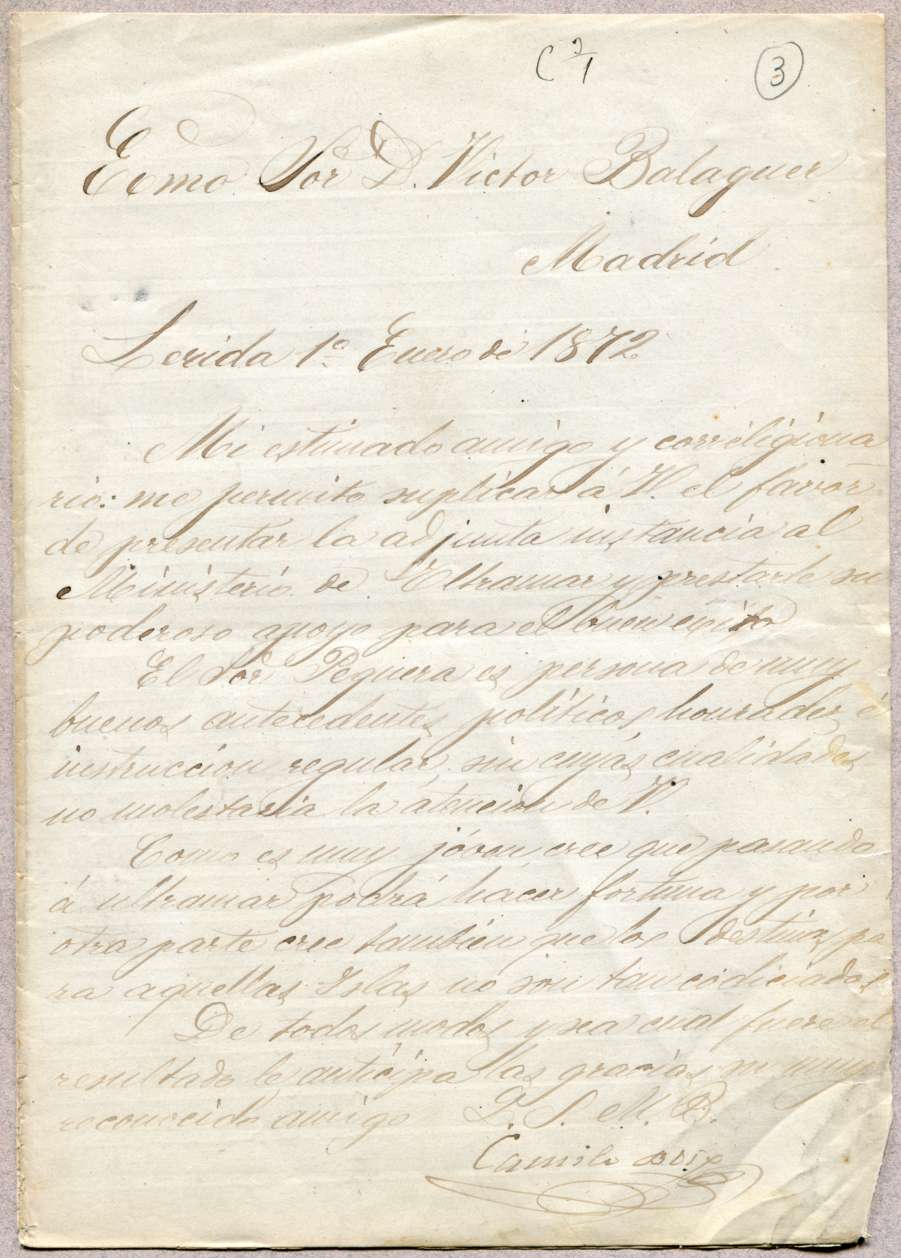 C 2/1
3
Ecmo Sor D. Victor Balaguer
Madrid
Lerida 1º Enero de 1872
Mi estimado amigo y correligiona
rio: me permito suplicar á V. el favor
de presentar la adjunta instancia al
Ministerio de Ultramar y prestarle su
poderoso apoyo para el buen éxito
El Sor Peguera es persona de muy
buenos antecedentes políticos, honradez é
instruccion regular, sin cuyás cualidades
no molestaria la atencion de V.
Como es muy jóven cree que pasando
á ultramar podrá hacer fortuna y por
otra parte cree tambien que los destinos pa
ra aquellas Islas no son tan codiciados
De todos modos y sea cual fuere el
resultado le anticipa las gracias su muy
reconocido amigo
S. M. B.
Camilo